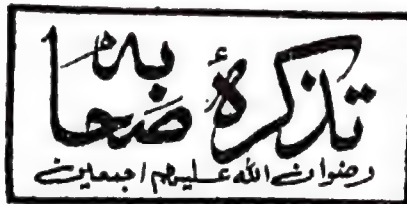 تذکرۂ صحابہؓ
رضوان اللہ علیہم اجمعین